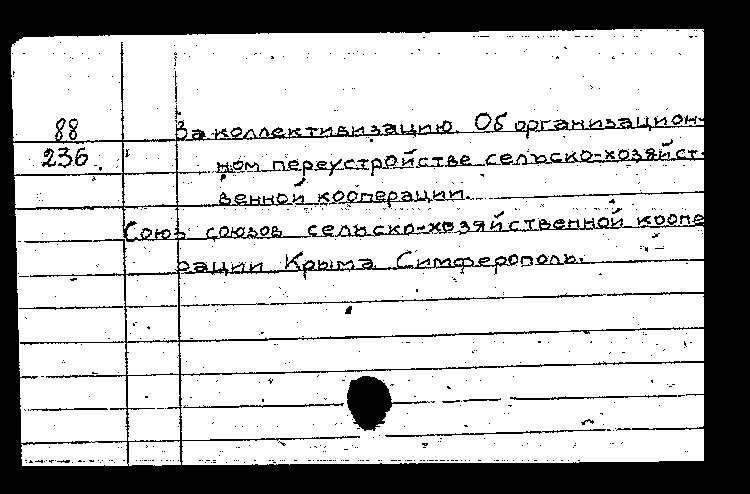 88 За коллективизацию. Об организацион-
236. ном переустройстве сельско-хозяйст-
венной кооперации.
Союз союзов сельско-хозяйственной коопе
рации Крыма Симферополь.